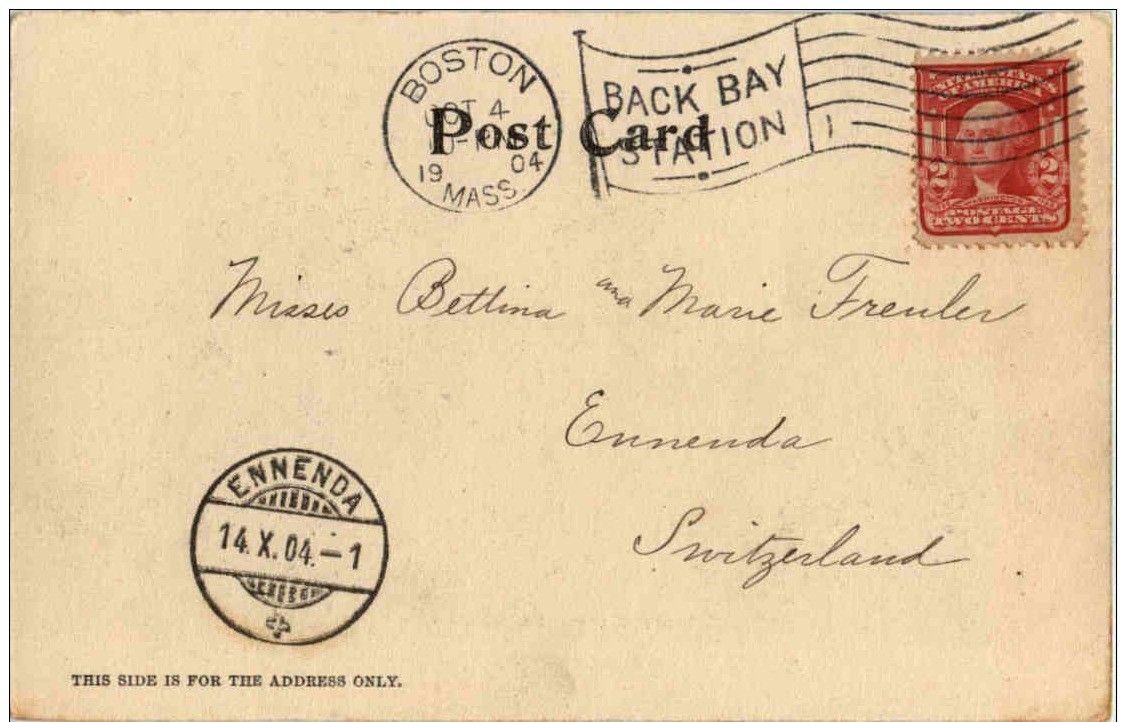 BOSTON
OCT 4
19 04
MASS.
BACK BAY
STATION
1
Post Card
UNITED STATES
OF AMERICA
2 2
POSTAGE
TWO CENTS
Misses Bettina and Marie Freuler
Ennenda
Switzerland
ENNENDA
14.X.04.–1
THIS SIDE IS FOR THE ADDRESS ONLY.